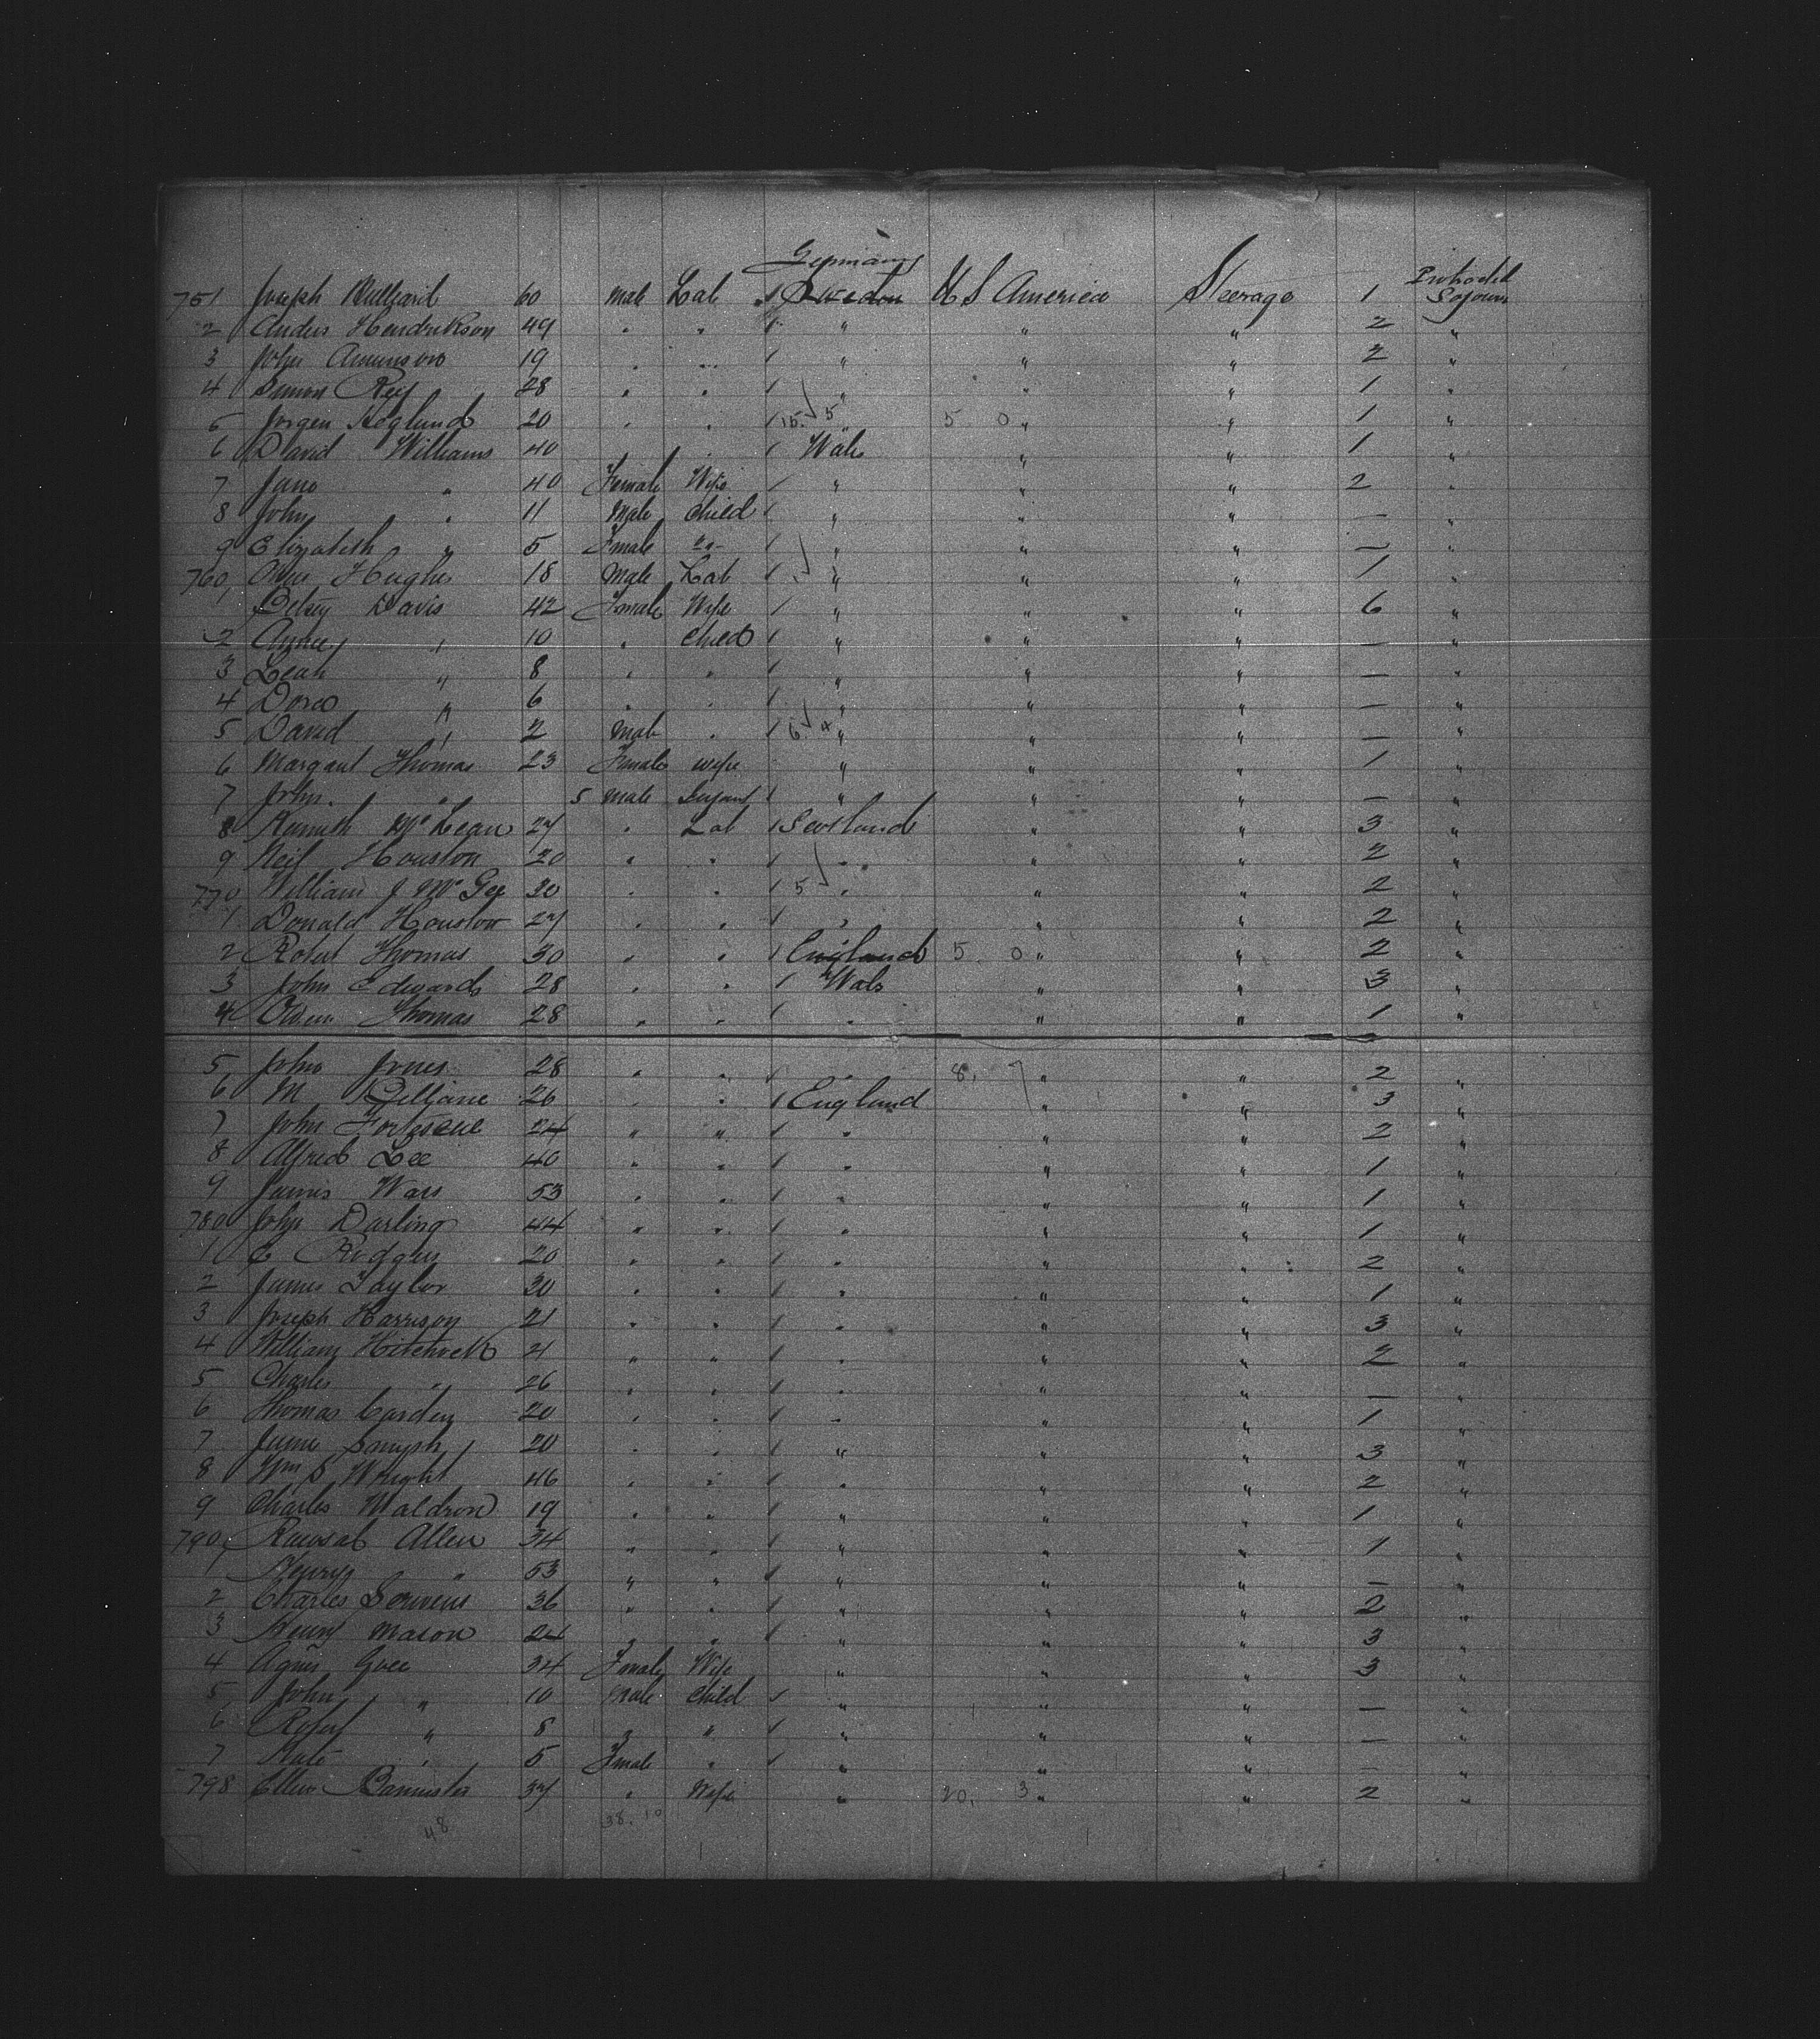 Germany
751 Joseph Bulliard 60 male Lab 1 Sweden U S America Steerage 1 Protracted Sojourn
2 Andus Hendrikson 49 " " 1 " " " 2 "
3 John Amunson 19 " " 1 " " " 2 "
4 Simon Rey 28 " " 1 " " " 1 "
5 Jorgen Hoglund 20 " " 1 15 5 " 5 0 " " 1 "
6 David Williams 40 " " 1 Wales " " 1 "
7 Jane " 40 Female Wife 1 " " " 2 "
8 John " 11 Male Child 1 " " " — "
9 Elizabeth " 5 Female " 1 " " " — "
760 Owen Hughes 18 Male Lab 1 " " " 1 "
1 Betsey Davis 42 Female Wife 1 " " " 6 "
2 Annie " 10 " Child 1 " " " — "
3 Leah " 8 " " 1 " " " — "
4 Dora " 6 " " 1 " " " — "
5 David " 2 Male " 1 6 4 " " " — "
6 Margaret Thomas 23 Female wife " " " 1 "
7 John " 5 male Infant 1 " " " — "
8 Kenneth McLean 27 " Lab 1 Scotland " " 3 "
9 Neil Houston 20 " " 1 " " " 2 "
770 William J McGee 20 " " 1 5 " " " 2 "
1 Donald Houston 27 " " 1 " " " 2 "
2 Robert Thomas 30 " " 1 England 5 0 " " 2 "
3 John Edwards 28 " " 1 Wales " " 3 "
4 Owen Thomas 28 " " 1 " " " 1 "
5 John Jones 28 " " 1 " 8. 7 " " 2 "
6 M 26 " " 1 England " " 3 "
7 John Fortescue 24 " " 1 " " " 2 "
8 Alfred Lee 40 " " 1 " " " 1 "
9 James Wass 53 " " 1 " " " 1 "
780 John Darling 44 " " 1 " " " 1 "
1 E Rodgers 20 " " 1 " " " 2 "
2 James Taylor 30 " " 1 " " " 1 "
3 Joseph Harrison 21 " " 1 " " " 3 "
4 William 21 " " 1 " " " 2 "
5 Charles " 26 " " 1 " " " — "
6 Thomas Carden 20 " " 1 " " " 1 "
7 Smyth 20 " " 1 " " " 3 "
8 Wm S Wright 46 " " 1 " " " 2 "
9 Charles Waldron 19 " " 1 " " " 1 "
790 Allen 34 " " 1 " " " 1 "
1 Henry " 53 " " 1 " " " — "
2 Charles Scrivens 36 " " 1 " " " 2 "
3 Henry Mason 24 " " 1 " " " 3 "
4 Agnes 34 Female Wife " " " 3 "
5 John " 10 Male Child 1 " " " — "
6 Robert " 8 " " 1 " " " — "
7 Kate " 5 Female " 1 " " " — "
798 Ellen Bannister 37 " Wife " 20. 3 " " 2 "
48 38. 10